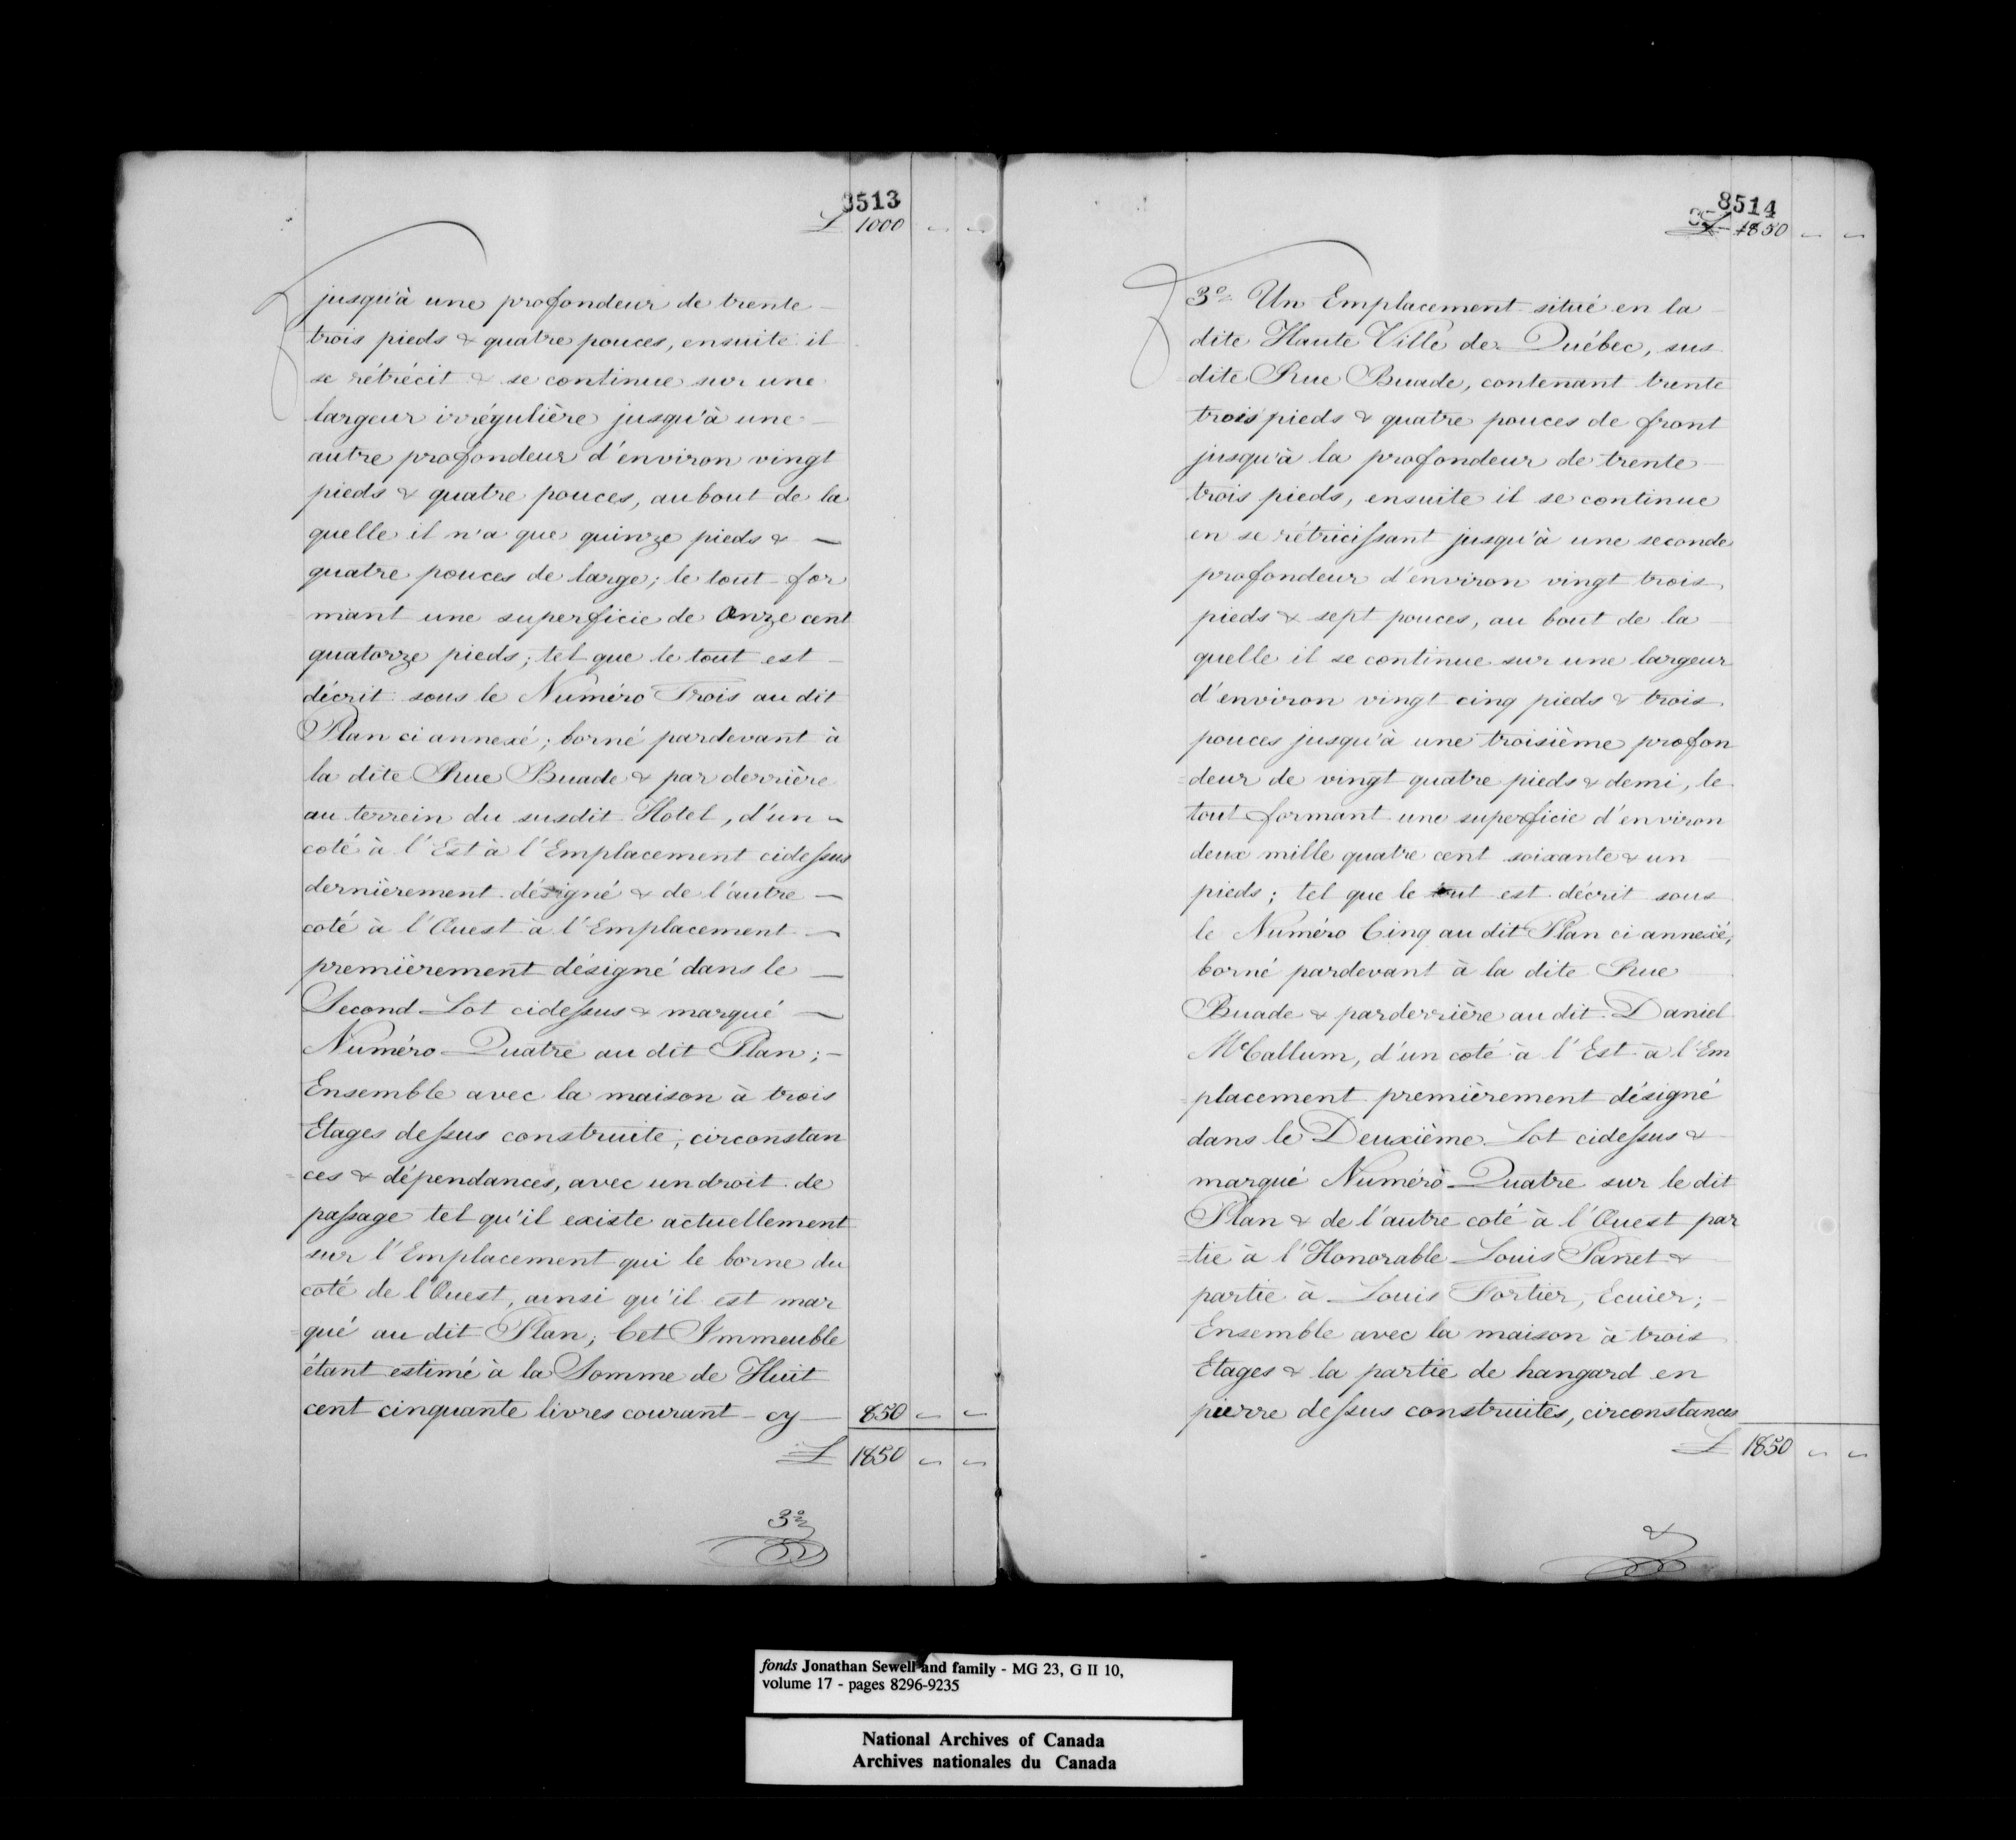 8513
£ 1000 " "
jusqu'à une profondeur de trente
trois pieds & quatre pouces, ensuite il
se rétrécit & se continue sur une
largeur irrégulière jusqu'à une
autre profondeur d'environ vingt
pieds & quatre pouces, au bout de la
quelle il n'a que quinze pieds & —
quatre pouces de large; le tout for
mant une superficie de Onze cent
quatorze pieds; tel que le tout est
décrit sous le Numéro Trois au dit
Plan ci annexé; borné pardevant à
la dite Rue Buade & par derrière
au terrein du susdit Hotel, d'un
coté à l'Est à l'Emplacement cidessus
dernièrement désigné & de l'autre —
coté à l'Ouest à l'Emplacement —
premièrement désigné dans le —
Second Lot cidessus & marqué —
Numéro Quatre au dit Plan; —
Ensemble avec la maison à trois
Etages dessus construite, circonstan
=ces & dépendances, avec un droit de
passage tel qu'il existe actuellement
sur l'Emplacement qui le borne du
coté de l'Ouest, ainsi qu'il est mar
=qué au dit Plan; Cet Immeuble
étant estimé à la Somme de Huit
cent cinquante livres courant - cy — 850 " "
£ 1850 " "
3º
8514
£ 1850 " "
3º Un Emplacement situé en la
dite Haute Ville de Québec, sus
dite Rue Buade, contenant trente
trois pieds & quatre pouces de front
jusqu'à la profondeur de trente
trois pieds, ensuite il se continue
en se rétricissant jusqu'à une seconde
profondeur d'environ vingt trois
pieds & sept pouces, au bout de la
quelle il se continue sur une largeur
d'environ vingt cinq pieds & trois
pouces jusqu'à une troisième profon
=deur de vingt quatre pieds & demi, le
tout formant une superficie d'environ
deux mille quatre cent soixante & un
pieds; tel que le tout est décrit sous
le Numéro Cinq au dit Plan ci annexé,
borné pardevant à la dite Rue
Buade & parderrière au dit Daniel
McCallum, d'un coté à l'Est à l'Em
=placement premièrement désigné
dans le Deuxième Lot cidessus &
marqué Numéro Quatre sur le dit
Plan & de l'autre coté à l'Ouest par
=tie à l'Honorable Louis Panet &
partie à Louis Fortier, Ecuier; —
Ensemble avec la maison à trois
Etages & la partie de hangard en
pierre dessus construites, circonstances
£ 1850 " "
&
fonds Jonathan Sewell and family - MG 23, G II 10,
volume 17 - pages 8296-9235
National Archives of Canada
Archives nationales du Canada